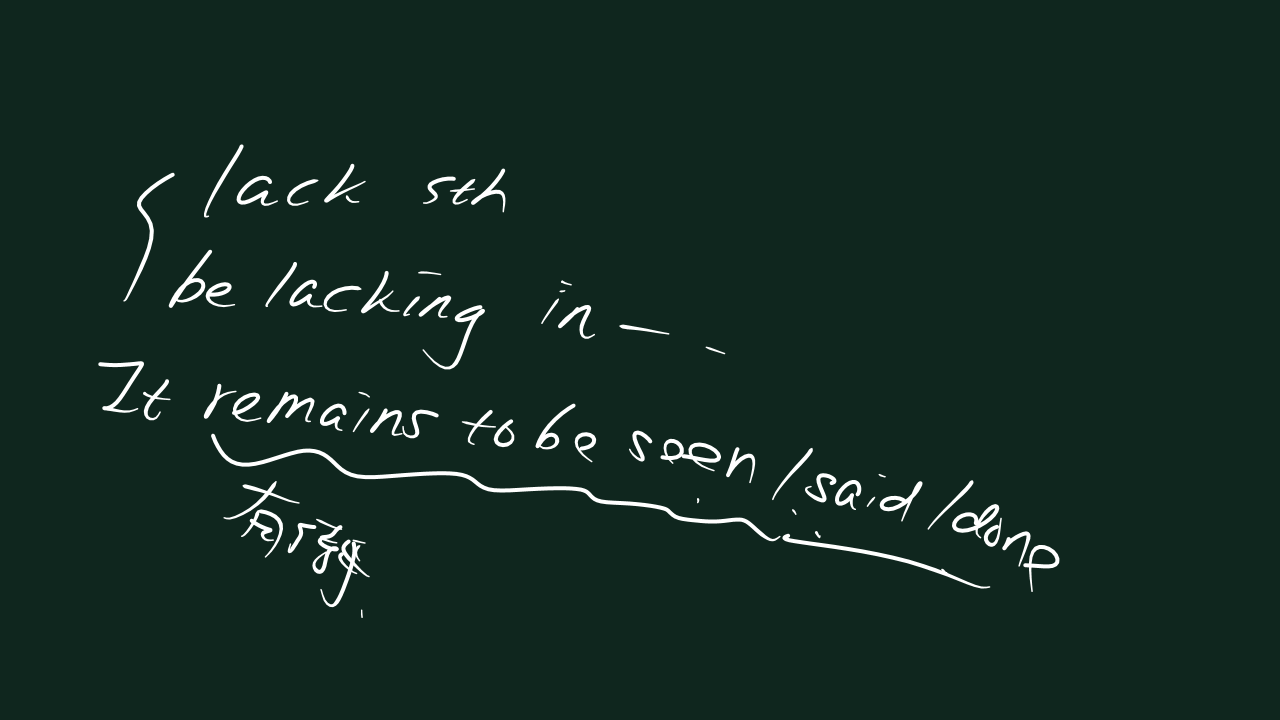 lack sth
be lacking in — -
It remains to be seen / said / done
有